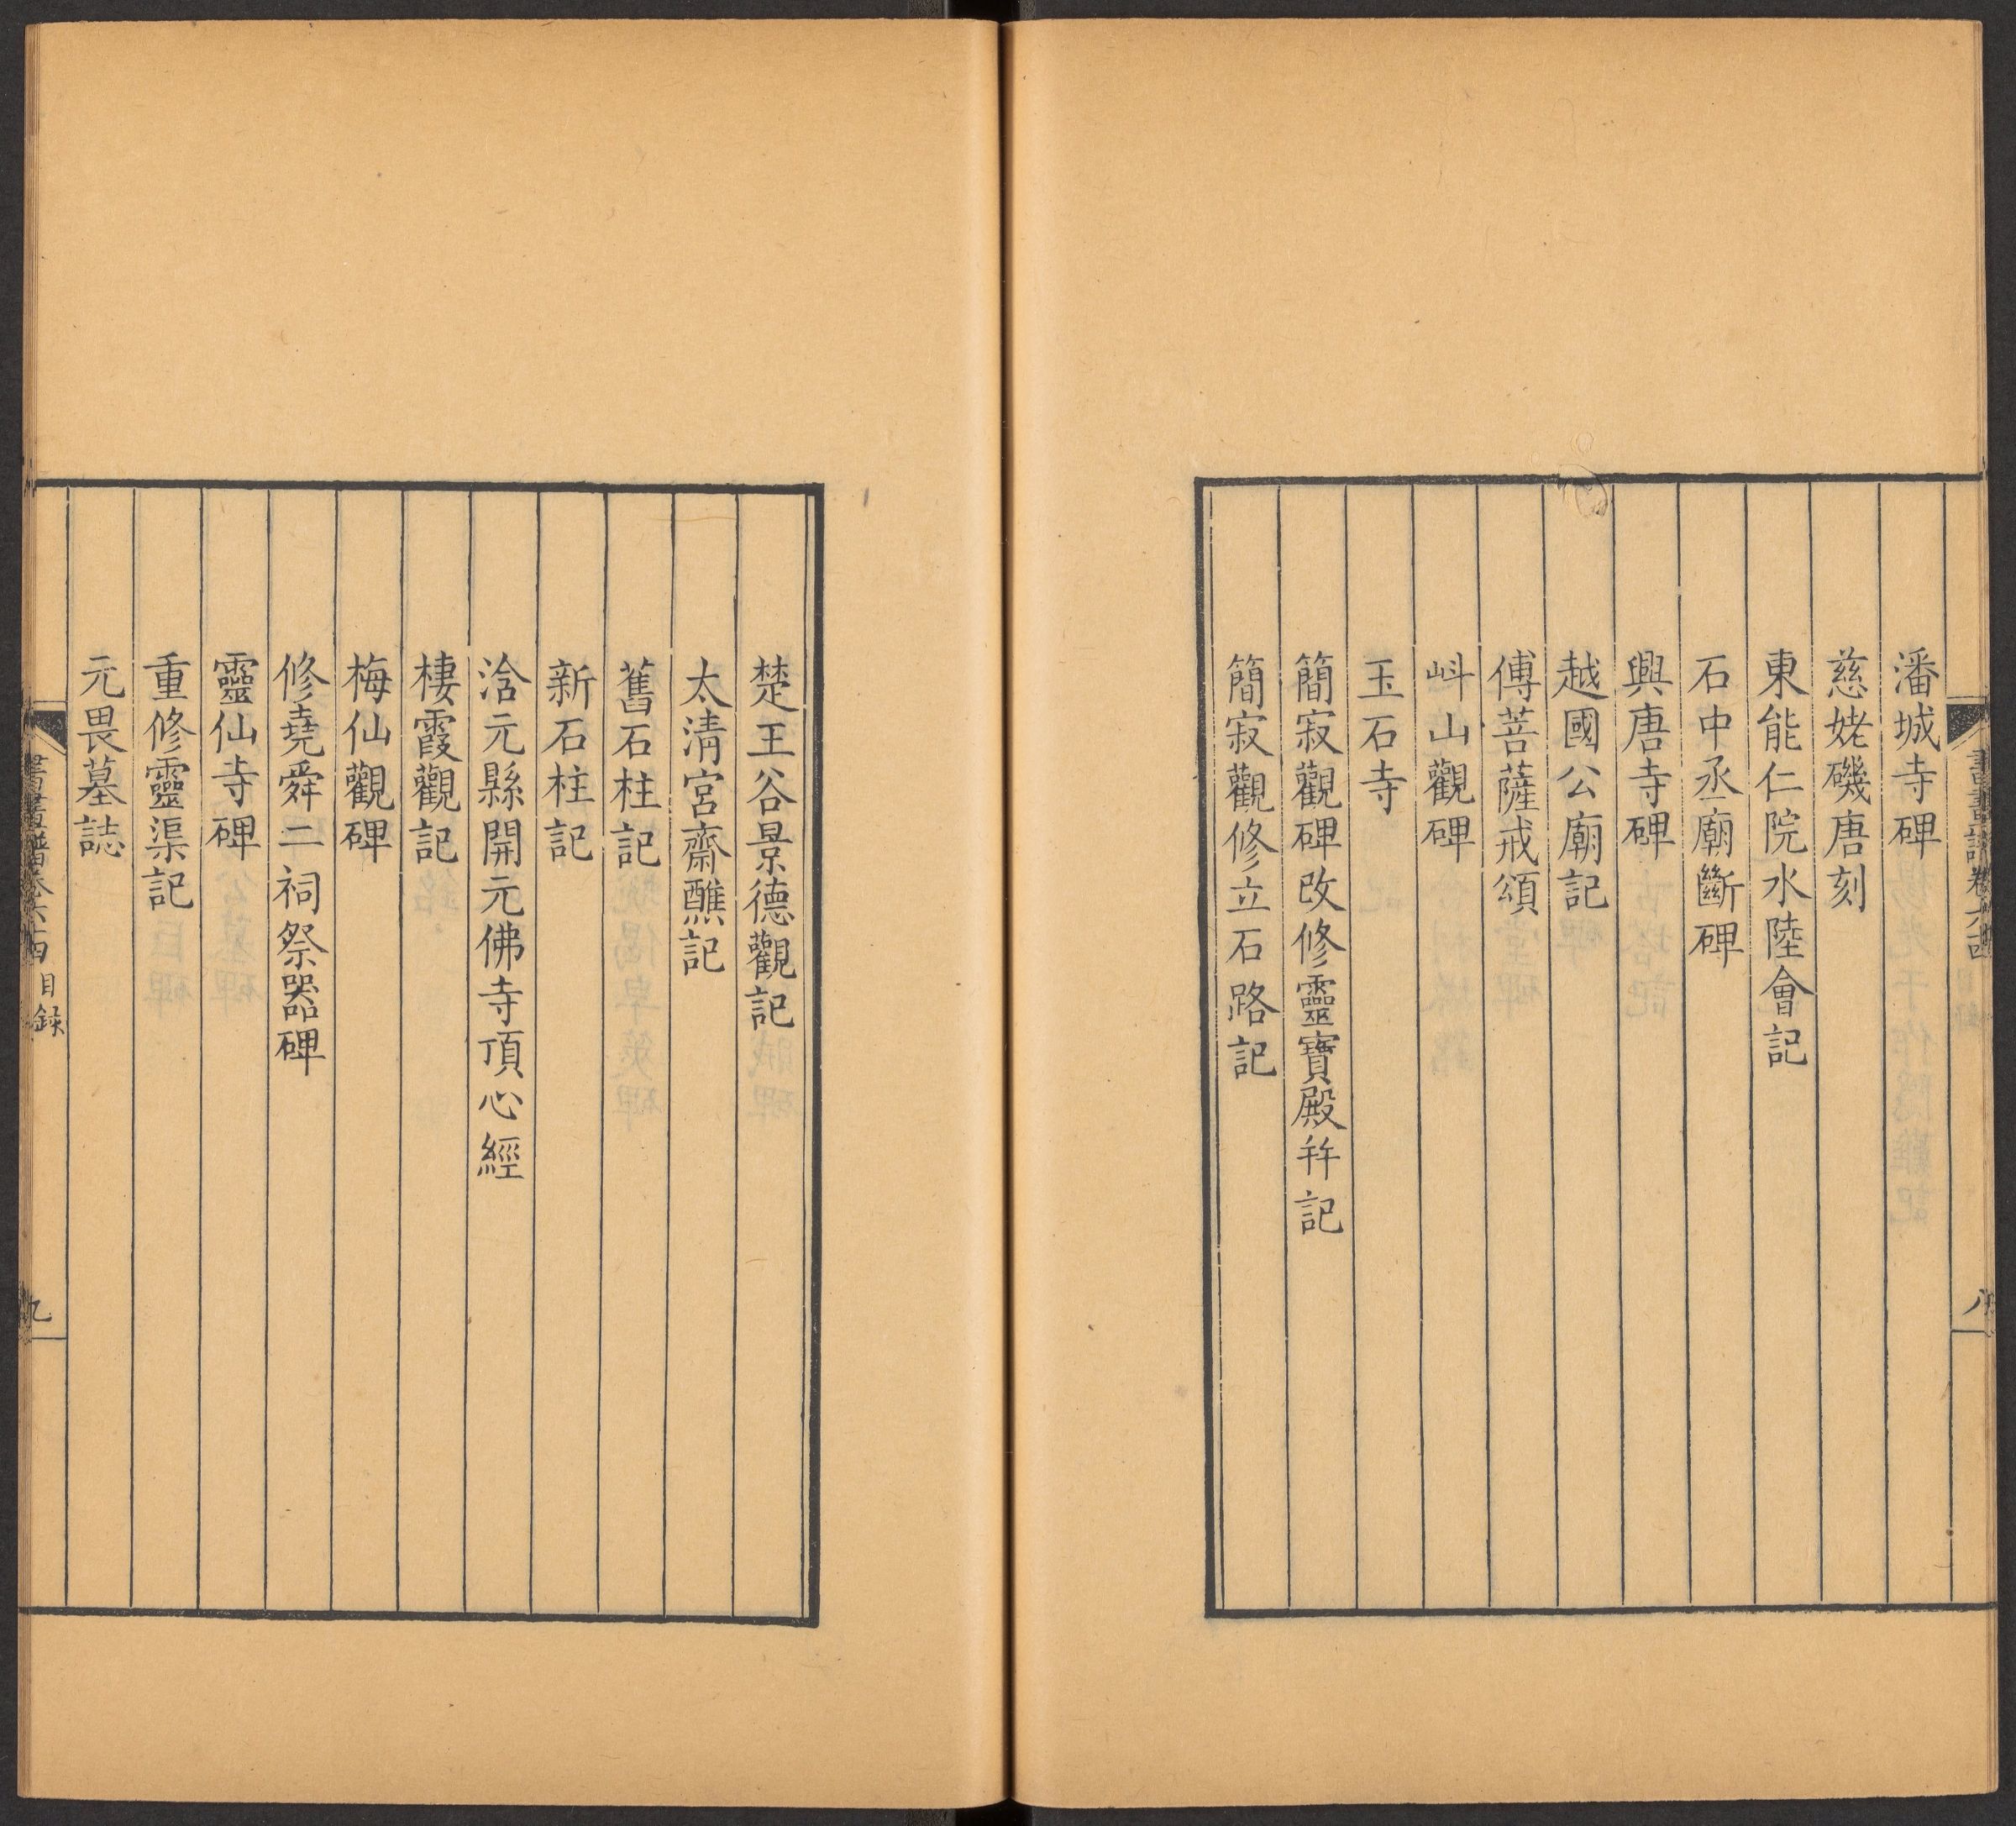 潘城寺碑
慈姥磯唐刻
東能仁院水陸會記
石中丞廟斷碑
興唐寺碑
越國公廟記
傅菩薩戒頌
㪷山觀碑
玉石寺
簡寂觀碑改修靈寶殿幷記
簡寂觀修立石路記
八
楚王谷景德觀記
太清宮齋醮記
舊石柱記
新石柱記
浛元縣開元佛寺頂心經
棲霞觀記
梅仙觀碑
修堯舜二祠祭器碑
靈仙寺碑
重修靈渠記
元畏墓誌
書畫譜卷六十四 目錄
九